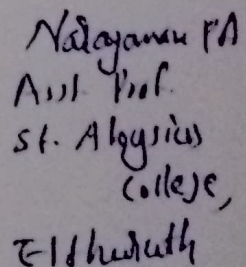 Narayanan P A
Asst Prof.
St. Aloysius
College,
Elthuruth